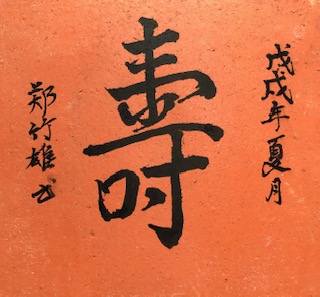 戊戌年夏月
壽
郑竹雄书